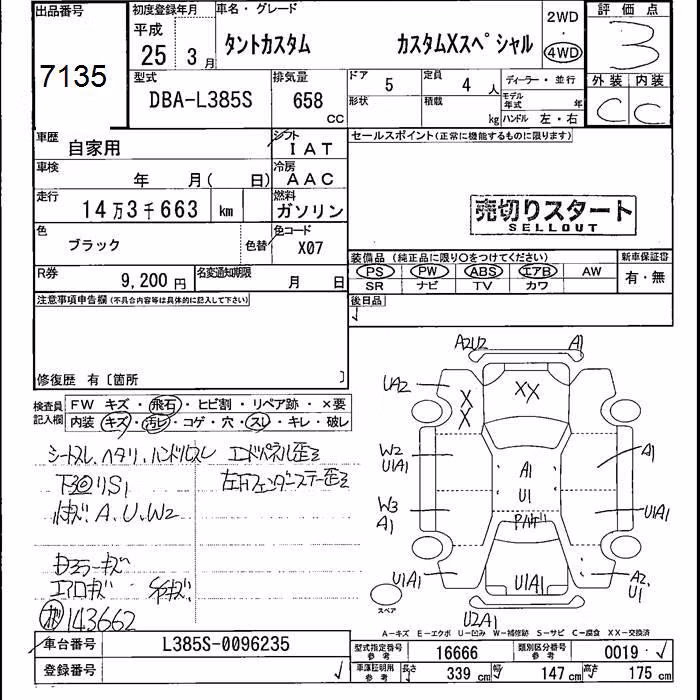 出品番号
7135
初度登録年月
平成
25年 3月
車名・グレード
タントカスタム カスタムXスペシャル
2WD
4WD
評価点
3
外装 内装
C C
型式
DBA-L385S
排気量
658
CC
ドア 5
定員 4 人
ディーラー・並行
形状
積載 kg
モデル年式 年
ハンドル 左・右
車歴
自家用
シフト
IAT
セールスポイント(正常に機能するものに限ります)
車検
年 月( 日)
冷房
AAC
走行
14万3千663 km
燃料
ガソリン
売切りスタート
SELLOUT
色
ブラック
色替
色コード
X07
装備品 (純正品に限り○をつけてください)
新車保証書
PS PW ABS エアB AW
有・無
SR ナビ TV カワ
R券
9,200 円
名変通知期限
月 日
後日品
注意事項申告欄(不具合内容等は具体的に記入して下さい)
修復歴 有〔箇所 〕
検査員記入欄
FW キズ・飛石・ヒビ割・リペア跡・×要
内装 キズ・汚レ・コゲ・穴・スレ・キレ・破レ
シートスレ、ヘタリ、ハンドルスレ エンドパネル歪ミ
下回リS1 左右フェンダーステー歪ミ
小キズ A、U、W2
ドアミラーキズ
エアロキズ
143662
A2U2 A1
UA2
X
X
XX
W2
U1A1
A1
A1
U1
W3
A1
U1A1
U1A1
U1A1
A2、
U1
U2A1
スペア
A-キズ E-エクボ U-凹み W-補修跡 S-サビ C-腐食 XX-交換済
車台番号
L385S-0096235
型式指定番号
参考
16666
類別区分番号
参考
0019
登録番号
車庫証明用
参考
長さ 339 cm 幅 147 cm 高さ 175 cm